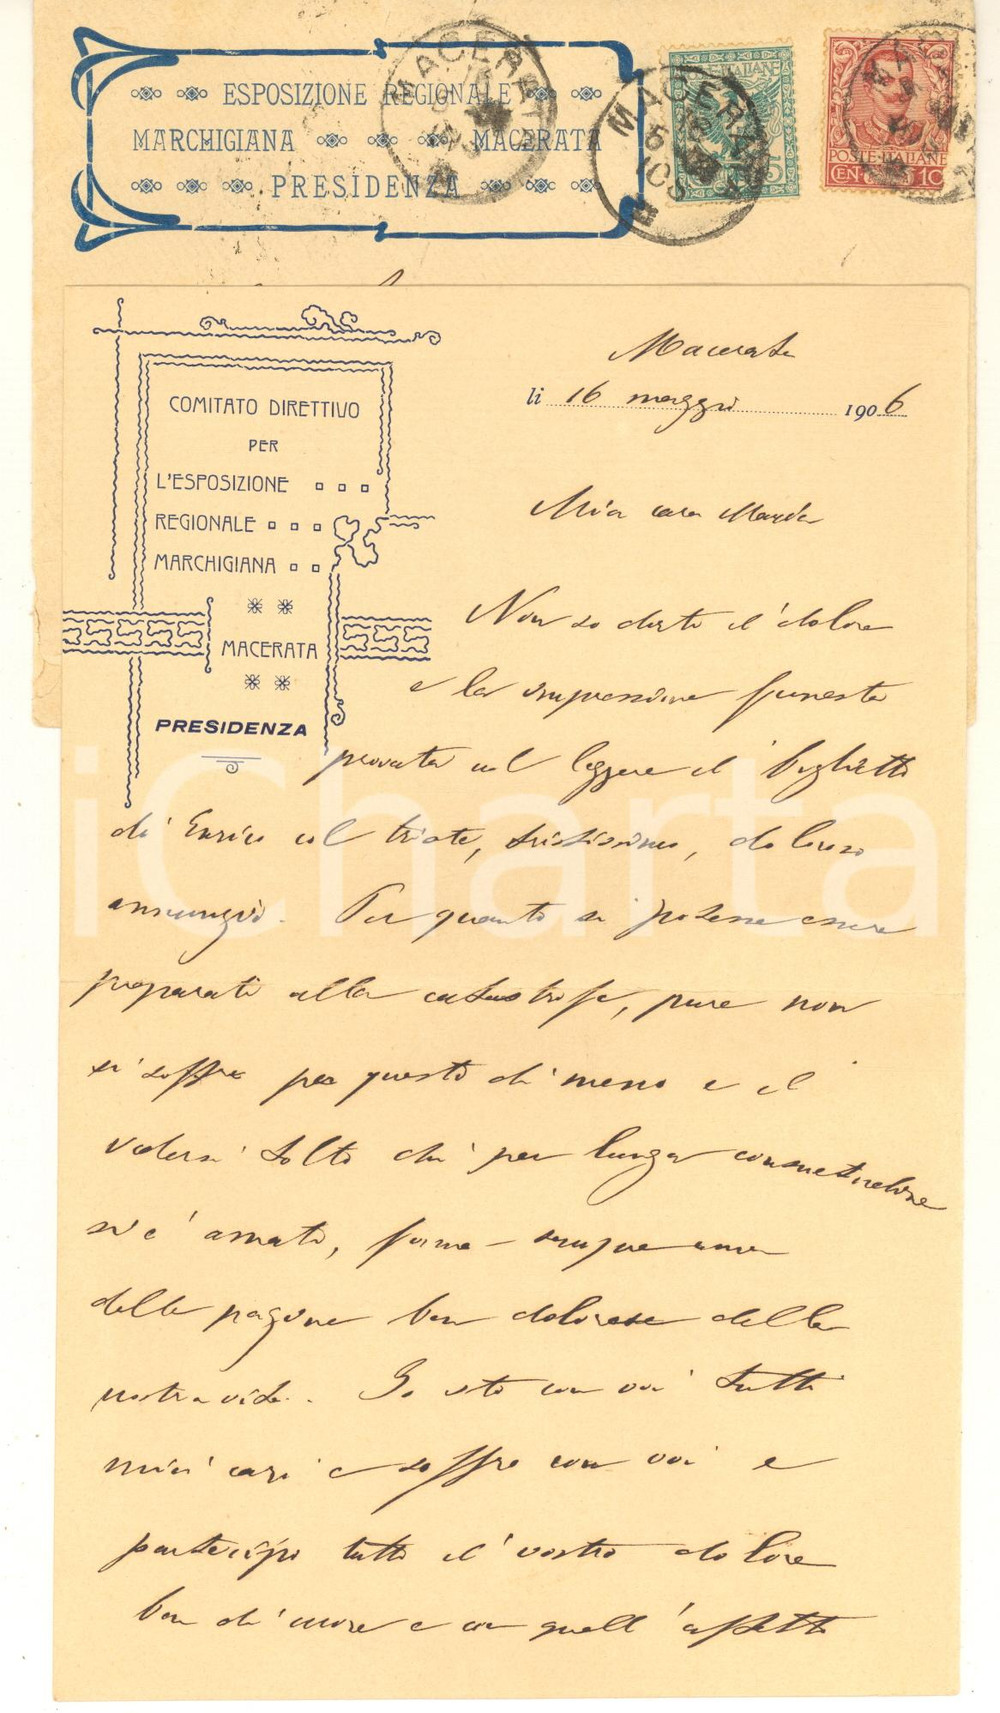 ESPOSIZIONE REGIONALE
MARCHIGIANA MACERATA
PRESIDENZA
MACERATA
MACERATA
5
POSTE ITALIANE
CENT. 10
COMITATO DIRETTIVO
PER
L'ESPOSIZIONE
REGIONALE
MARCHIGIANA
MACERATA
PRESIDENZA
Macerata
li 16 maggio 1906
Mia cara Magda
Non so dirti il dolore
e la impressione funesta
provata nel leggere il biglietto
di Enrico col triste, tristissimo, doloroso
annunzio. Per quanto si potesse essere
preparati alla catastrofe, pure non
si soffre per questo di meno e il
vedersi tolto chi per lunga consuetudine
si è amato, forma sempre una
delle pagine ben dolorose della
nostra vita. Io sto con voi tutti
miei cari e soffro con voi e
partecipo tutto il vostro dolore
ben di cuore e con quell'affetto
iCharta